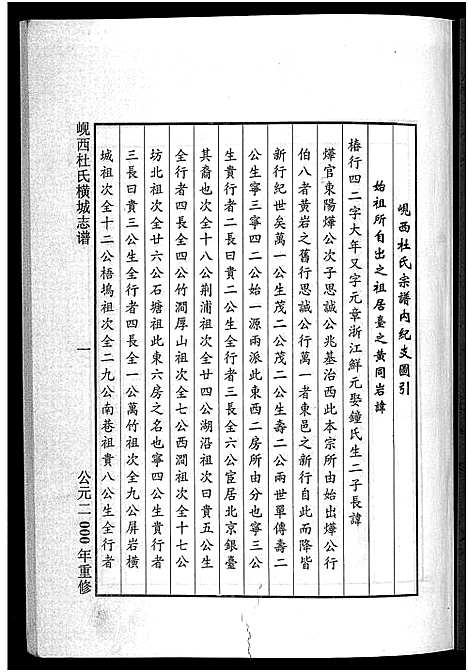 峴西杜氏宗譜内紀支圖引
始祖所自出之祖居臺之黄同岩諱
椿行四二字大年又字元章浙江鮮元娶鐘氏生二子長諱
燁官東陽燁公次子思誠公兆基治西此本宗所由始出燁公行
伯八者黄岩之舊行思誠公行萬一者東邑之新行自此而降皆
新行紀世矣萬一公生茂二公茂二公生壽二公兩世單傳壽二
公生寧三寧四二公始一源兩派此東西二房所由分也寧三公
生貴行者二長曰貴二公生全行者三長全六公宦居北京銀臺
其裔也次曰全十八公荆浦祖次曰全廿四公湖沿祖次曰貴五公生
全行者四長全四公竹澗厚山祖次全七公西澗祖次全十七公
坊北祖次全廿六公石塘祖此東六房之名也寧四公生貴行者
三長曰貴三公生全行者四長全一公萬竹祖次全九公屏岩橫
城祖次全十二公梧塢祖次全二九公南巷祖貴八公生全行者
岘西杜氏横城志谱
一
公元二000年重修